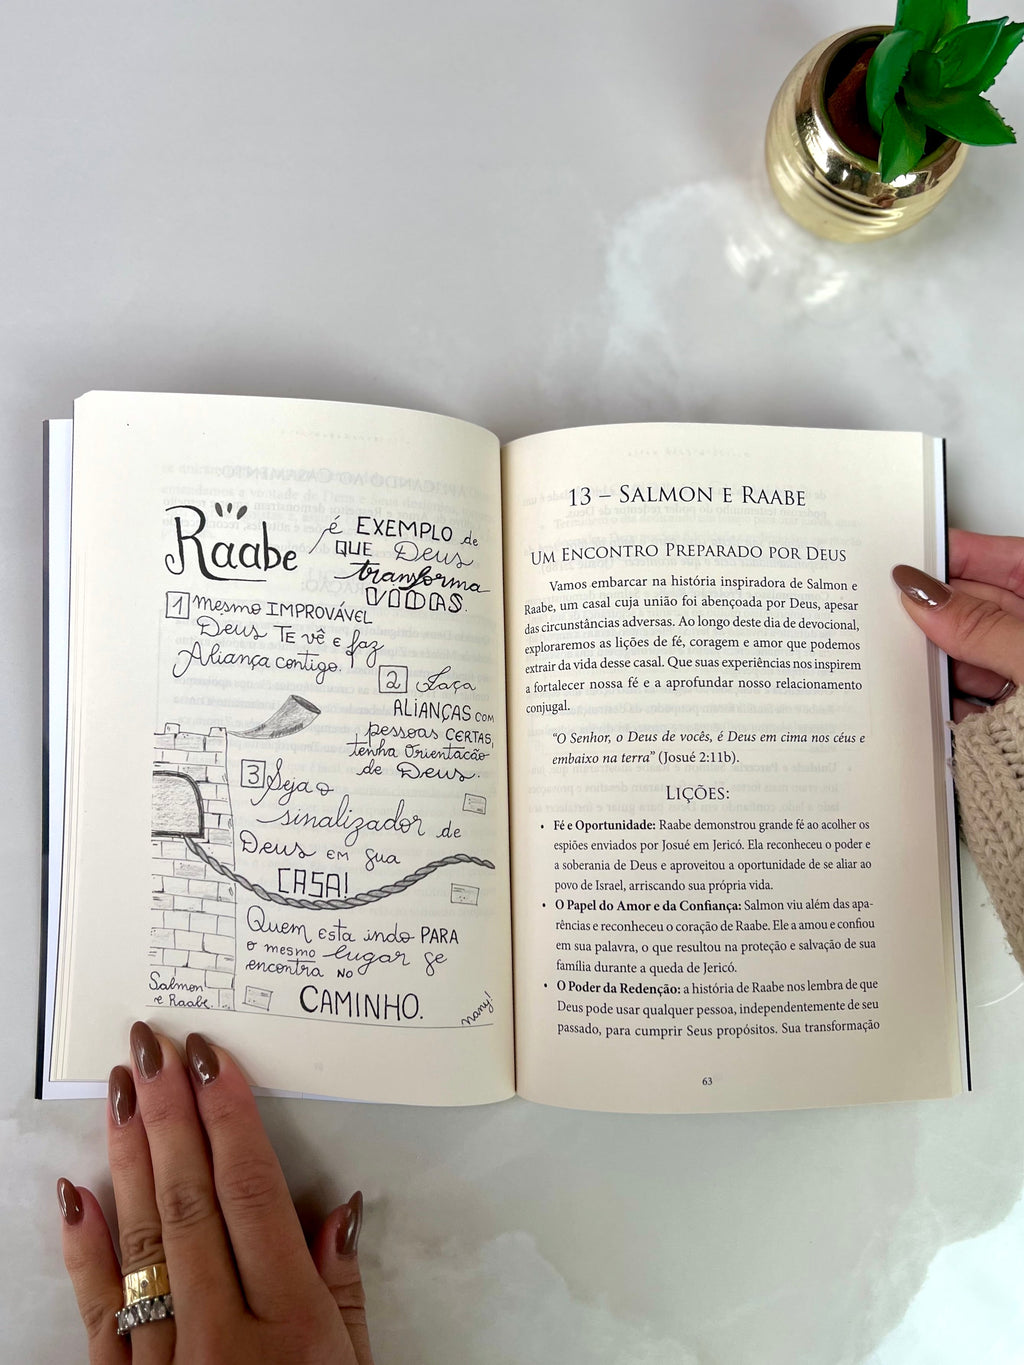 Raabe
é EXEMPLO de
QUE Deus
transforma
VIDAS.
1 Mesmo IMPROVÁVEL
Deus TE vê e faz
Aliança contigo.
2 Faça
ALIANÇAS com
pessoas CERTAS,
tenha Orientacão
de Deus.
3 Seja o
sinalizador de
Deus EM sua
CASA!
Quem esta indo PARA
o mesmo lugar se
encontra NO
CAMINHO.
Salmon
e Raabe.
nany!
13 – Salmon e Raabe
Um Encontro Preparado por Deus
Vamos embarcar na história inspiradora de Salmon e
Raabe, um casal cuja união foi abençoada por Deus, apesar
das circunstâncias adversas. Ao longo deste dia de devocional,
exploraremos as lições de fé, coragem e amor que podemos
extrair da vida desse casal. Que suas experiências nos inspirem
a fortalecer nossa fé e a aprofundar nosso relacionamento
conjugal.
“O Senhor, o Deus de vocês, é Deus em cima nos céus e
embaixo na terra” (Josué 2:11b).
Lições:
• Fé e Oportunidade: Raabe demonstrou grande fé ao acolher os
espiões enviados por Josué em Jericó. Ela reconheceu o poder e
a soberania de Deus e aproveitou a oportunidade de se aliar ao
povo de Israel, arriscando sua própria vida.
• O Papel do Amor e da Confiança: Salmon viu além das apa-
rências e reconheceu o coração de Raabe. Ele a amou e confiou
em sua palavra, o que resultou na proteção e salvação de sua
família durante a queda de Jericó.
• O Poder da Redenção: a história de Raabe nos lembra de que
Deus pode usar qualquer pessoa, independentemente de seu
passado, para cumprir Seus propósitos. Sua transformação
63